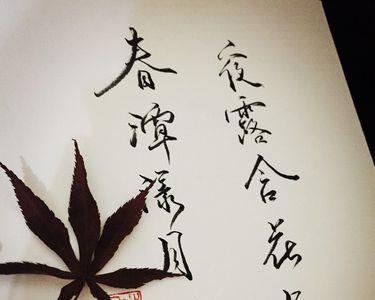 夜露含花
春潭漾月